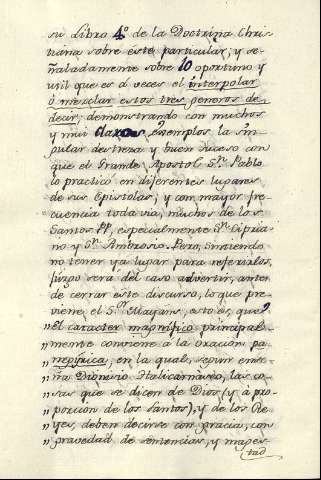 su Libro 4º de la Doctrina Chris-
tiana sobre este particular; y se-
ñaladamente sobre lo oportuno y
util que es á veces el interpolar
ó mezclar estos tres generos de
decir; demostrando con muchos
y mui claros exemplos la sin-
gular destreza y buen suceso con
que el Grande Apostol Sn. Pablo
lo practicó en diferentes lugares
de sus Epistolas; y con mayor fre-
cuencia todavia, muchos de los
Santos PP, especialmente Sn. Cipria-
no y Sn. Ambrosio. Pero, sintiendo
no tener ya lugar para referirlos,
juzgo será del caso advertir, antes
de cerrar este discurso, lo que pre-
viene el Sor. Mayans, esto es, que,
„ el caracter magnifico principal-
„ mente conviene á la oracion pa-
„ negirica; en la qual, segun ense-
„ ña Dionisio Halicarnáseo, las co-
„ sas que se dicen de Dios (y á pro-
„ porcion de los Santos), y de los Re-
„ yes, deben decirse con gracia, con
„ gravedad de sentencias, y mages-
tad